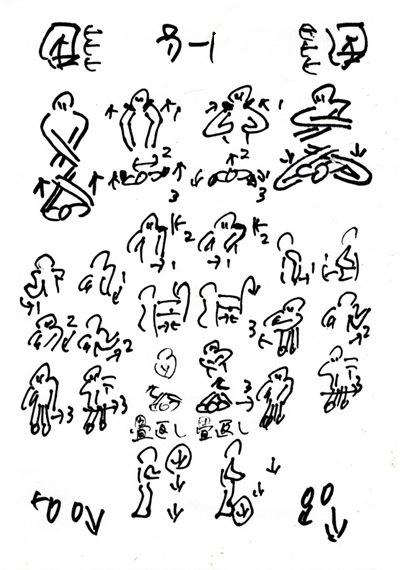 1 1
2 2
3 3
2 2
1 1
1 1 1
1
2 3 2
3
3 3 3
畳返し 畳返し